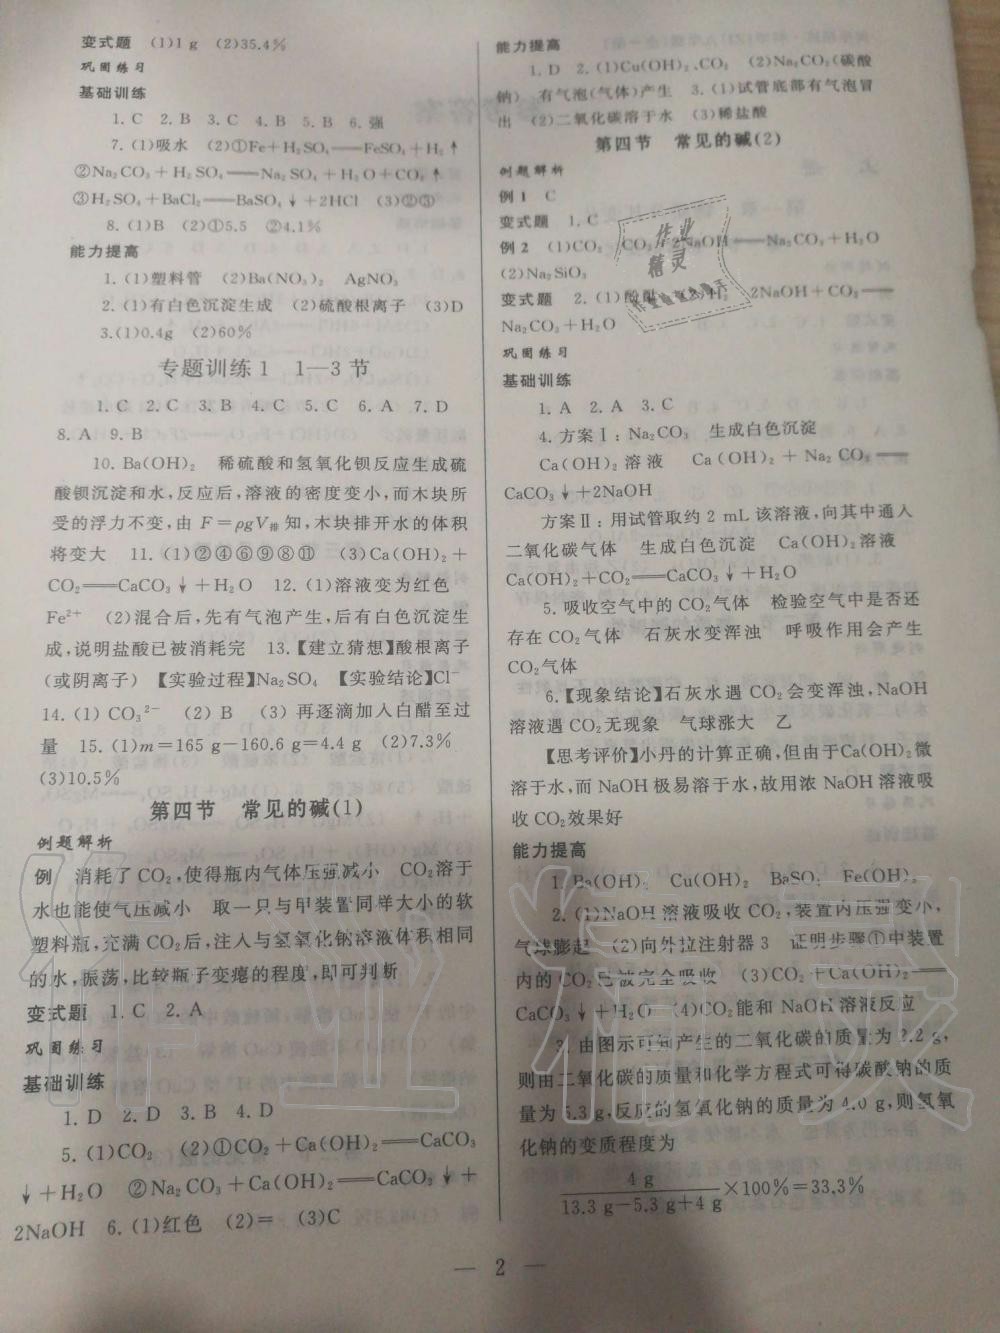 变式题　(1)1 g　(2)35.4%
巩固练习
基础训练
1. C　2. B　3. C　4. B　5. B　6. 强
7. (1)吸水　(2)①Fe+H₂SO₄══FeSO₄+H₂↑
②Na₂CO₃+H₂SO₄══Na₂SO₄+H₂O+CO₂↑
③H₂SO₄+BaCl₂══BaSO₄↓+2HCl　(3)②③
8. (1)B　(2)①5.5　②4.1%
能力提高
1. (1)塑料管　(2)Ba(NO₃)₂　AgNO₃
2. (1)有白色沉淀生成　(2)硫酸根离子　(3)D
3.(1)0.4g　(2)60%
专题训练1　1—3节
1. C　2. C　3. B　4. C　5. C　6. A　7. D
8. A　9. B
10. Ba(OH)₂　稀硫酸和氢氧化钡反应生成硫
酸钡沉淀和水,反应后,溶液的密度变小,而木块所
受的浮力不变,由 F=ρgV排 知,木块排开水的体积
将变大　11. (1)②④⑥⑨⑧⑪　(3)Ca(OH)₂+
CO₂══CaCO₃↓+H₂O　12. (1)溶液变为红色
Fe²⁺　(2)混合后,先有气泡产生,后有白色沉淀生
成,说明盐酸已被消耗完　13.【建立猜想】酸根离子
(或阴离子)　【实验过程】Na₂SO₄　【实验结论】Cl⁻
14. (1) CO₃²⁻　(2) B　(3) 再逐滴加入白醋至过
量　15. (1)m=165 g-160.6 g=4.4 g　(2)7.3%
(3)10.5%
第四节　常见的碱(1)
例题解析
例　消耗了CO₂,使得瓶内气体压强减小　CO₂溶于
水也能使气压减小　取一只与甲装置同样大小的软
塑料瓶,充满CO₂后,注入与氢氧化钠溶液体积相同
的水,振荡,比较瓶子变瘪的程度,即可判断
变式题　1. C　2. A
巩固练习
基础训练
1. D　2. D　3. B　4. D
5. (1)CO₂　(2)①CO₂+Ca(OH)₂══CaCO₃
↓+H₂O　②Na₂CO₃+Ca(OH)₂══CaCO₃↓+
2NaOH　6. (1)红色　(2)=　(3)C
能力提高
1. D　2. (1)Cu(OH)₂、CO₂　(2)Na₂CO₃(碳酸
钠)　有气泡(气体)产生　3. (1)试管底部有气泡冒
出　(2)二氧化碳溶于水　(3)稀盐酸
第四节　常见的碱(2)
例题解析
例1　C
变式题　1. C
例2　(1)CO₂　CO₂ NaOH══Na₂CO₃+H₂O
(2)Na₂SiO₃
变式题　2. (1)酚酞　2NaOH+CO₂══
Na₂CO₃+H₂O
巩固练习
基础训练
1. A　2. A　3. C
4. 方案Ⅰ:Na₂CO₃　生成白色沉淀
Ca(OH)₂溶液　Ca(OH)₂+Na₂CO₃══
CaCO₃↓+2NaOH
方案Ⅱ:用试管取约2 mL该溶液,向其中通入
二氧化碳气体　生成白色沉淀　Ca(OH)₂溶液
Ca(OH)₂+CO₂══CaCO₃↓+H₂O
5. 吸收空气中的CO₂气体　检验空气中是否还
存在CO₂气体　石灰水变浑浊　呼吸作用会产生
CO₂气体
6.【现象结论】石灰水遇CO₂会变浑浊,NaOH
溶液遇CO₂无现象　气球涨大　乙
【思考评价】小丹的计算正确,但由于Ca(OH)₂微
溶于水,而NaOH极易溶于水,故用浓NaOH溶液吸
收CO₂效果好
能力提高
1. Ba(OH)₂　Cu(OH)₂　BaSO₄　Fe(OH)₃
2. (1)NaOH溶液吸收CO₂,装置内压强变小,
气球膨起　(2)向外拉注射器3　证明步骤①中装置
内的CO₂已被完全吸收　(3)CO₂+Ca(OH)₂══
CaCO₃↓+H₂O　(4)CO₂能和NaOH溶液反应
3. 由图示可知产生的二氧化碳的质量为2.2 g,
则由二氧化碳的质量和化学方程式可得碳酸钠的质
量为5.3 g,反应的氢氧化钠的质量为4.0 g,则氢氧
化钠的变质程度为
4 g
13.3 g-5.3 g+4 g ×100%=33.3%
— 2 —
作业
精灵